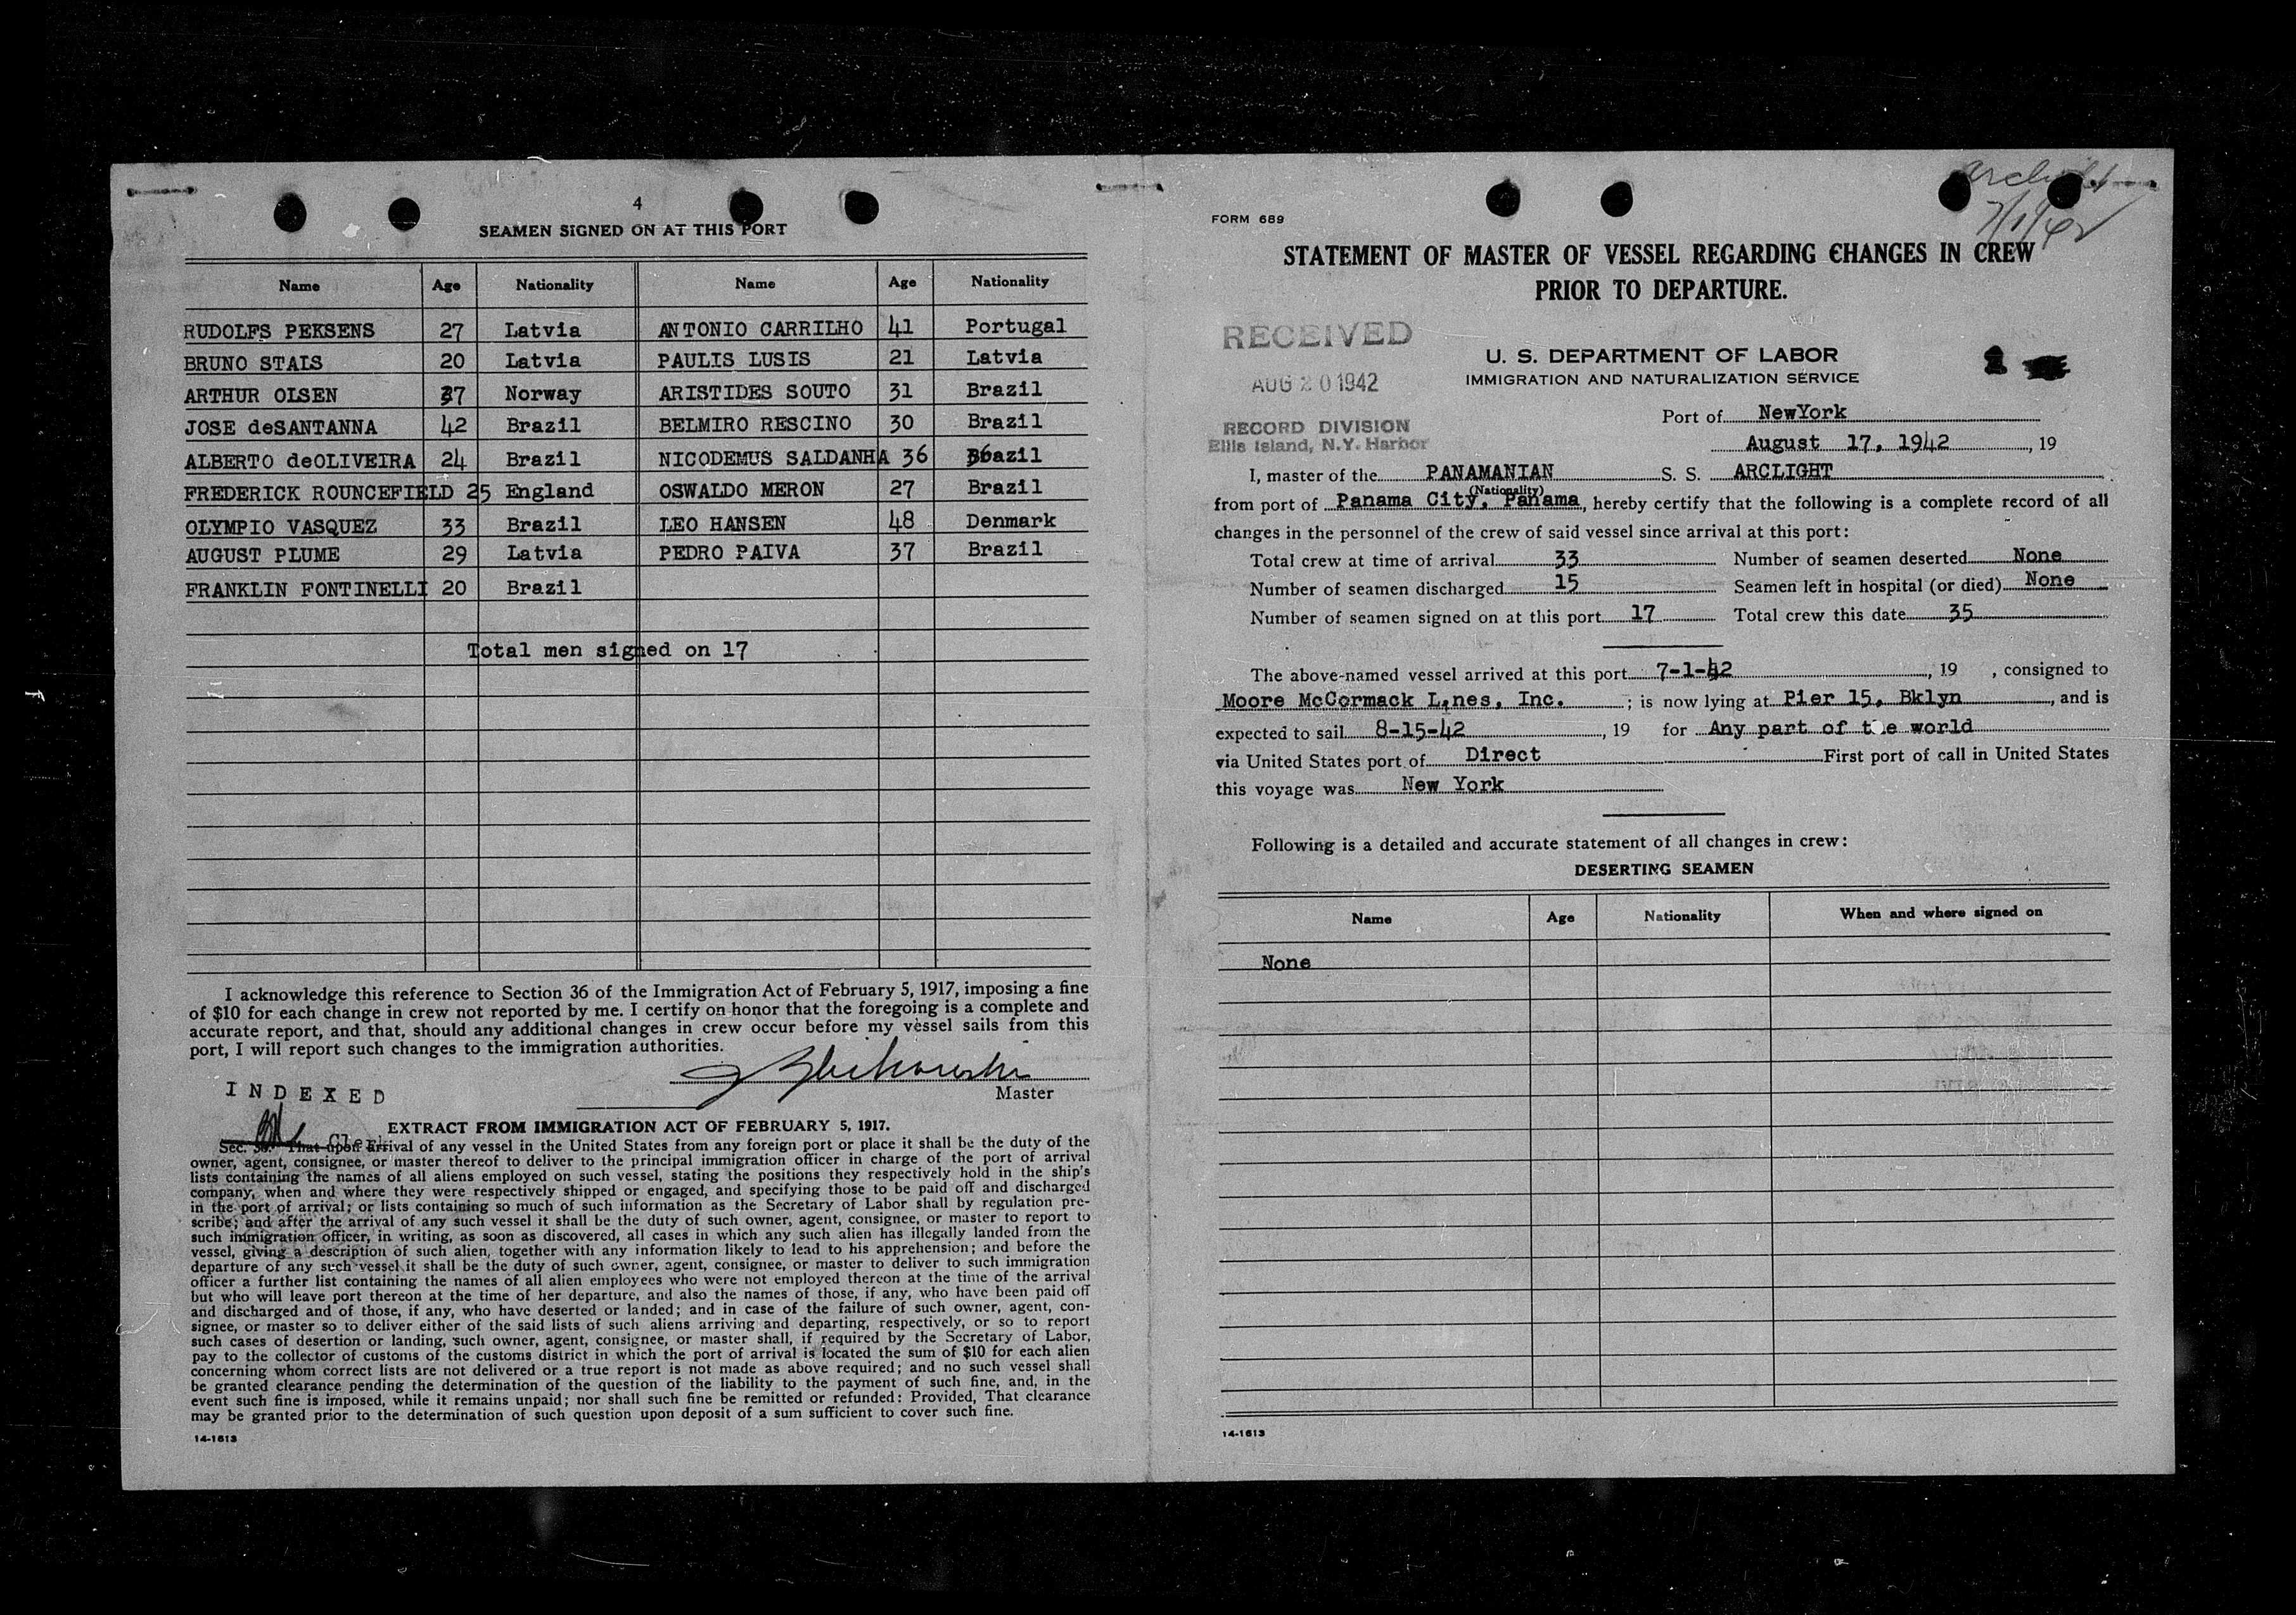 4
SEAMEN SIGNED ON AT THIS PORT
Name Age Nationality Name Age Nationality
RUDOLFS PEKSENS 27 Latvia ANTONIO CARRILHO 41 Portugal
BRUNO STALS 20 Latvia PAULIS LUSIS 21 Latvia
ARTHUR OLSEN 37 Norway ARISTIDES SOUTO 31 Brazil
JOSE deSANTANNA 42 Brazil BELMIRO RESCINO 30 Brazil
ALBERTO deOLIVEIRA 24 Brazil NICODEMUS SALDANHA 36 Brazil
FREDERICK ROUNCEFIELD 25 England OSWALDO MERON 27 Brazil
OLYMPIO VASQUEZ 33 Brazil LEO HANSEN 48 Denmark
AUGUST PLUME 29 Latvia PEDRO PAIVA 37 Brazil
FRANKLIN FONTINELLI 20 Brazil
Total men signed on 17
I acknowledge this reference to Section 36 of the Immigration Act of February 5, 1917, imposing a fine
of $10 for each change in crew not reported by me. I certify on honor that the foregoing is a complete and
accurate report, and that, should any additional changes in crew occur before my vessel sails from this
port, I will report such changes to the immigration authorities.
Master
INDEXED
EXTRACT FROM IMMIGRATION ACT OF FEBRUARY 5, 1917.
Sec. 36. That upon arrival of any vessel in the United States from any foreign port or place it shall be the duty of the
owner, agent, consignee, or master thereof to deliver to the principal immigration officer in charge of the port of arrival
lists containing the names of all aliens employed on such vessel, stating the positions they respectively hold in the ship's
company, when and where they were respectively shipped or engaged, and specifying those to be paid off and discharged
in the port of arrival; or lists containing so much of such information as the Secretary of Labor shall by regulation pre-
scribe; and after the arrival of any such vessel it shall be the duty of such owner, agent, consignee, or master to report to
such immigration officer, in writing, as soon as discovered, all cases in which any such alien has illegally landed from the
vessel, giving a description of such alien, together with any information likely to lead to his apprehension; and before the
departure of any such vessel it shall be the duty of such owner, agent, consignee, or master to deliver to such immigration
officer a further list containing the names of all alien employees who were not employed thereon at the time of the arrival
but who will leave port thereon at the time of her departure, and also the names of those, if any, who have been paid off
and discharged and of those, if any, who have deserted or landed; and in case of the failure of such owner, agent, con-
signee, or master so to deliver either of the said lists of such aliens arriving and departing, respectively, or so to report
such cases of desertion or landing, such owner, agent, consignee, or master shall, if required by the Secretary of Labor,
pay to the collector of customs of the customs district in which the port of arrival is located the sum of $10 for each alien
concerning whom correct lists are not delivered or a true report is not made as above required; and no such vessel shall
be granted clearance pending the determination of the question of the liability to the payment of such fine, and, in the
event such fine is imposed, while it remains unpaid; nor shall such fine be remitted or refunded: Provided, That clearance
may be granted prior to the determination of such question upon deposit of a sum sufficient to cover such fine.
14-1613
Arclight
7/1/42
FORM 689
STATEMENT OF MASTER OF VESSEL REGARDING CHANGES IN CREW
PRIOR TO DEPARTURE.
RECEIVED
AUG 20 1942
RECORD DIVISION
Ellis Island, N.Y. Harbor
U. S. DEPARTMENT OF LABOR
IMMIGRATION AND NATURALIZATION SERVICE
Port of NewYork
August 17, 1942, 19
I, master of the PANAMANIAN S. S. ARCLIGHT
(Nationality)
from port of Panama City, Panama, hereby certify that the following is a complete record of all
changes in the personnel of the crew of said vessel since arrival at this port:
Total crew at time of arrival 33 Number of seamen deserted None
Number of seamen discharged 15 Seamen left in hospital (or died) None
Number of seamen signed on at this port 17 Total crew this date 35
The above-named vessel arrived at this port 7-1-42, 19 , consigned to
Moore McCormack Lines, Inc. ; is now lying at Pier 15, Bklyn, and is
expected to sail 8-15-42, 19 for Any part of the world
via United States port of Direct First port of call in United States
this voyage was New York
Following is a detailed and accurate statement of all changes in crew:
DESERTING SEAMEN
Name Age Nationality When and where signed on
None
14-1613